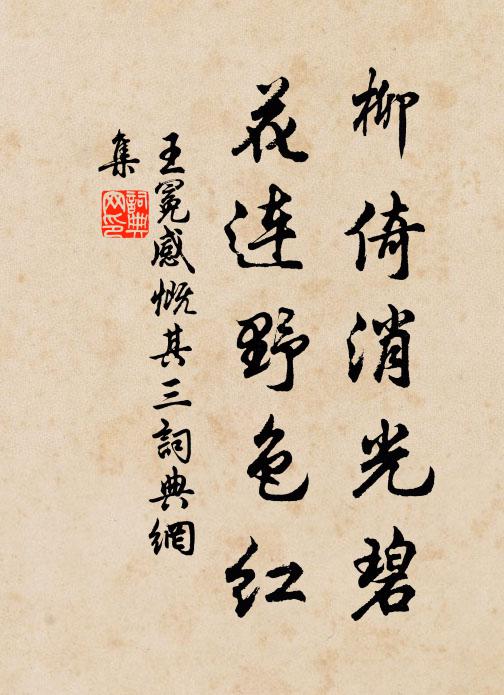 柳倚消光碧
花连野色红
王冕感慨其三词典網
集
詞典
网印